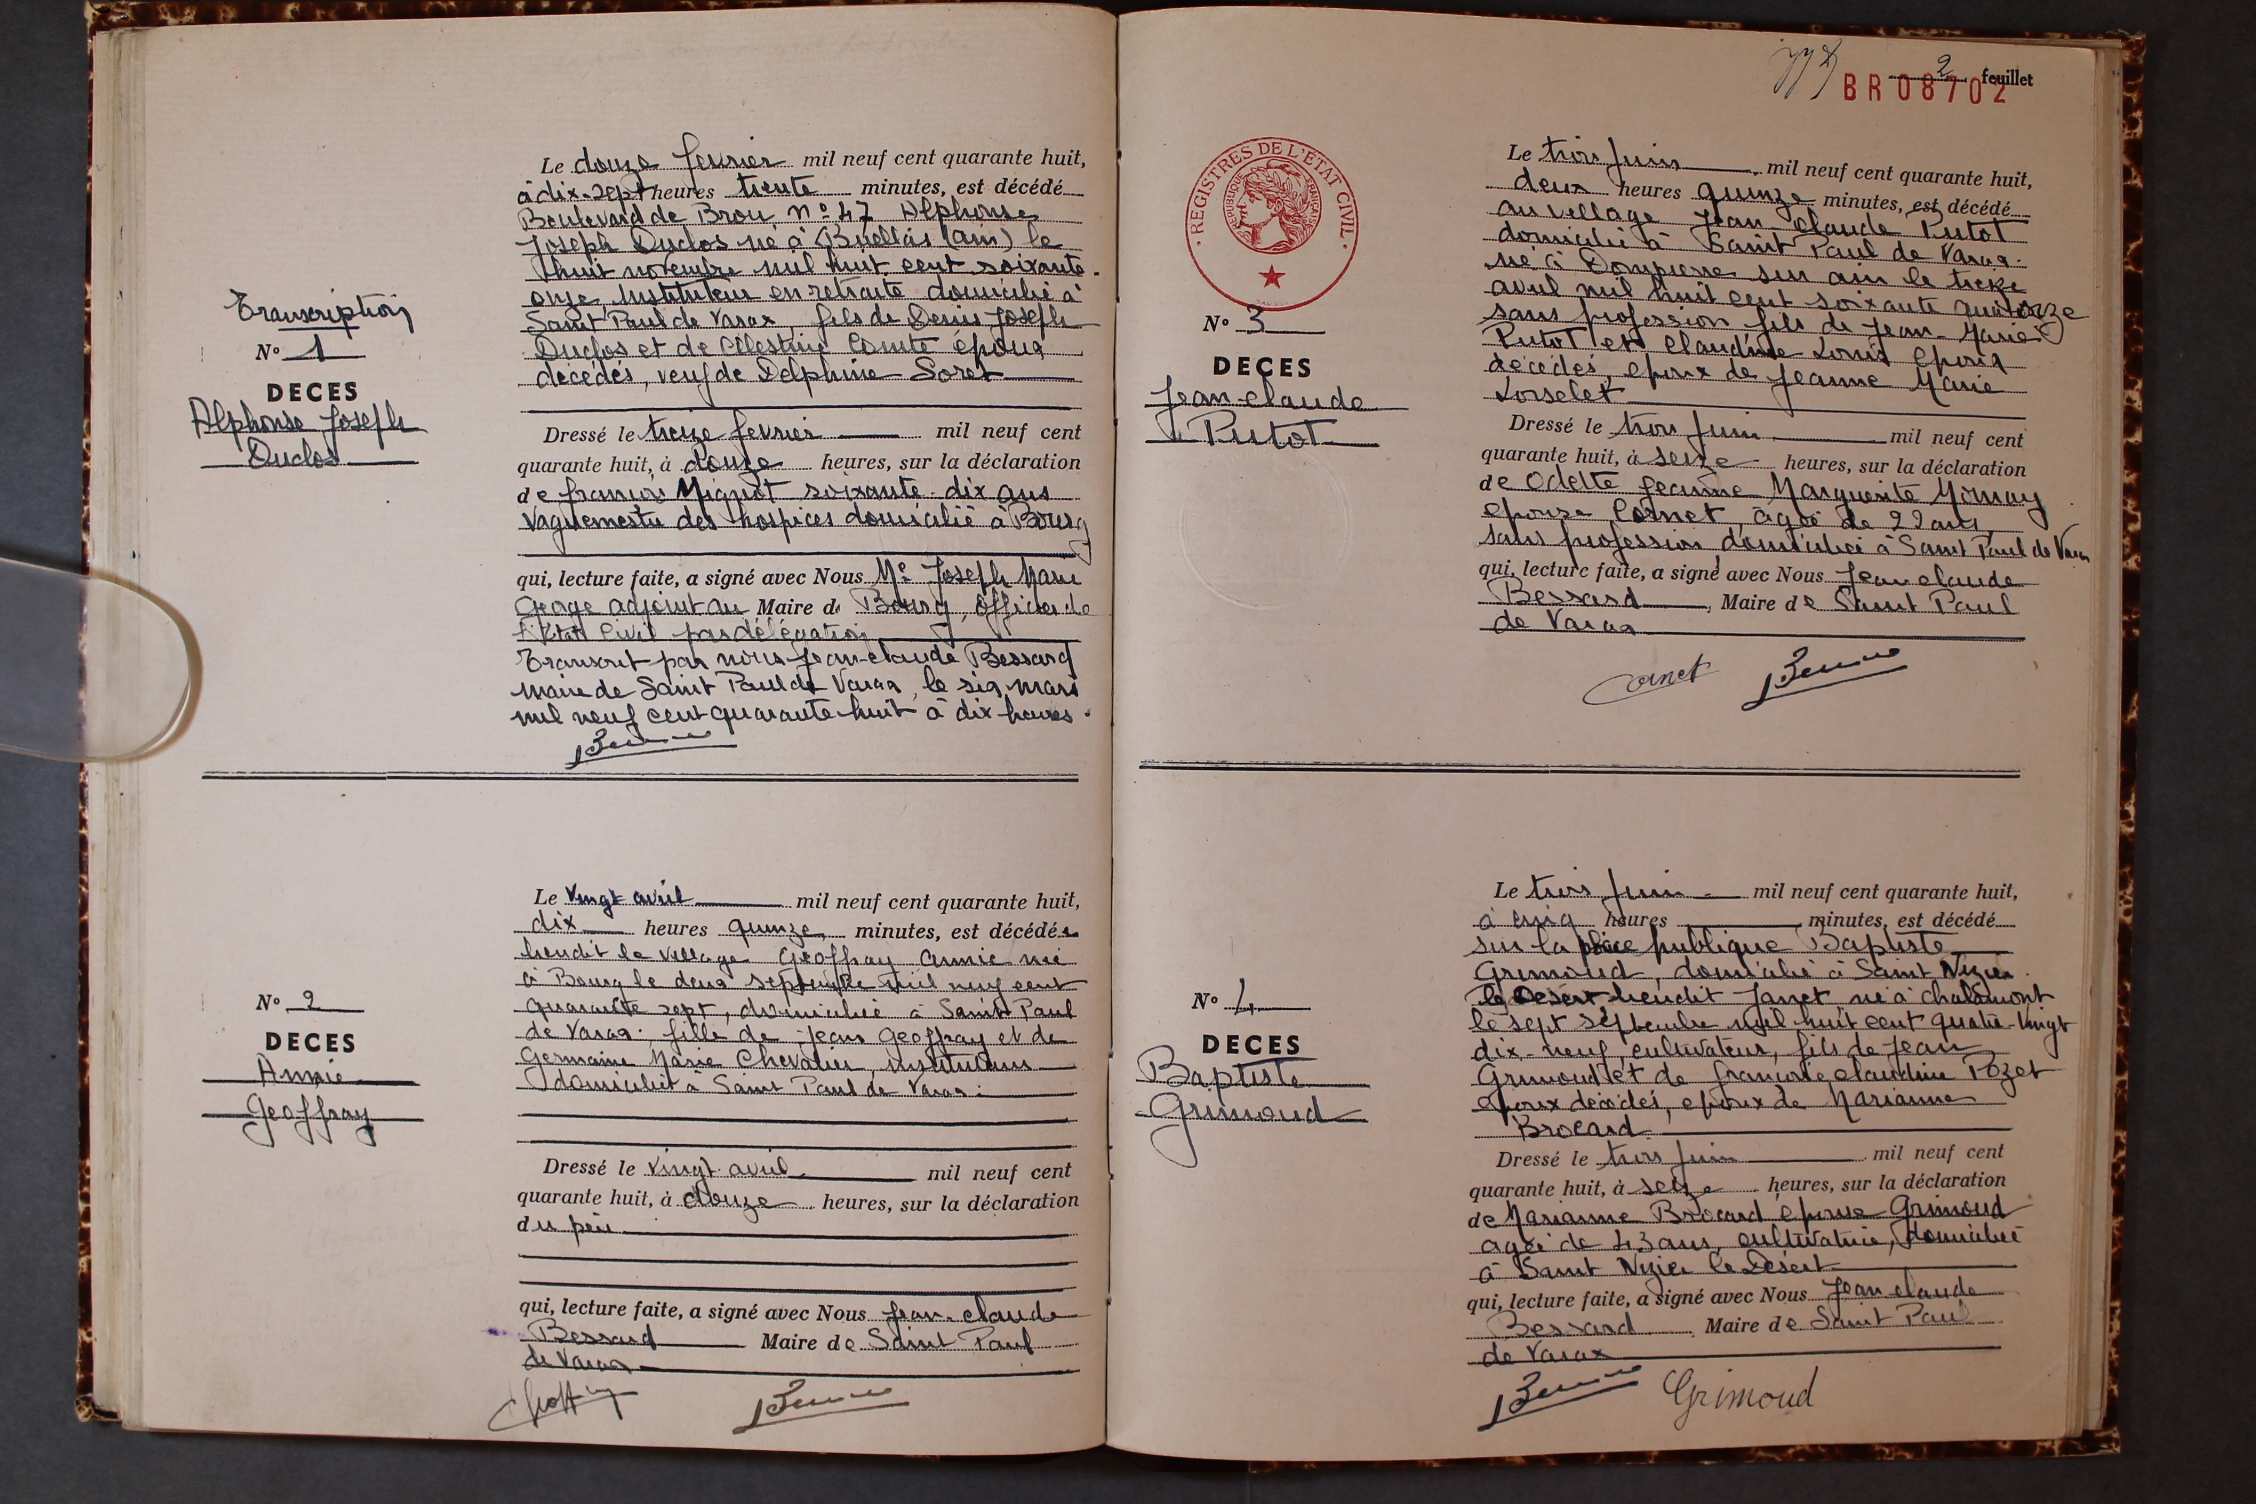 Transcription
N° 1
DECES
Alphonse Joseph
Duclos
Le douze février mil neuf cent quarante huit,
à dix-sept heures trente minutes, est décédé
Boulevard de Brou n° 47 Alphonse
Joseph Duclos né à Buellas (ain) le
huit novembre mil huit cent soixante
onze, Instituteur en retraite domicilié à
Saint Paul de Varax, fils de Denis Joseph
Duclos et de Célestine Comte époux
décédés, veuf de Delphine Soret
Dressé le treize fevrier mil neuf cent
quarante huit, à douze heures, sur la déclaration
de françois Mignot soixante-dix ans
Vaguemestre des hospices domicilié à Bourg
qui, lecture faite, a signé avec Nous Me Joseph Marie
George adjoint au Maire de Bourg, officier de
l'Etat Civil par délégation
Transcrit par nous Jean-claude Bessard
Maire de Saint Paul de Varax, le six mars
mil neuf cent quarante huit à dix heures.
N° 2
DECES
Annie
Geoffray
Le vingt avril mil neuf cent quarante huit,
dix heures quinze minutes, est décédée
lieudit le village Geoffray Annie née
à Bourg le deux septembre mil neuf cent
quarante sept, domiciliée à Saint Paul
de Varax. fille de Jean Geoffray et de
Germaine Marie Chevalier, instituteurs
domiciliés à Saint Paul de Varax.
Dressé le vingt avril mil neuf cent
quarante huit, à douze heures, sur la déclaration
du père
qui, lecture faite, a signé avec Nous Jean-claude
Bessard Maire de Saint Paul
de Varax
2 feuillet
BR 08702
REGISTRES DE L'ETAT CIVIL
REPUBLIQUE FRANÇAISE
N° 3
DECES
Jean-claude
Putot
Le trois Juin mil neuf cent quarante huit,
deux heures quinze minutes, est décédé
au village Jean claude Putot
domicilié à Saint Paul de Varax.
né à Dompierre sur ain le treize
avril mil huit cent soixante quatorze
sans profession fils de Jean-Marie
Putot et claudine Louis epoux
décédés, epoux de Jeanne Marie
Loiselet
Dressé le trois Juin mil neuf cent
quarante huit, à seize heures, sur la déclaration
de Odette Jeanne Marguerite
epouse Cornet, agée de 22 ans,
sans profession, domiciliée à Saint Paul de Varax
qui, lecture faite, a signé avec Nous Jean claude
Bessard, Maire de Saint Paul
de Varax
Cornet
N° 4
DECES
Baptiste
Grimoud
Le trois Juin mil neuf cent quarante huit,
à cinq heures minutes, est décédé
sur la place publique Baptiste
Grimoud, domicilié à Saint Nizier
le Desert lieudit Janet né à chalamont
le sept septembre mil huit cent quatre-vingt
dix-neuf, cultivateur, fils de Jean
Grimoud et de françoise claudine Pozet
epoux décédés, epoux de Marianne
Brocard
Dressé le trois Juin mil neuf cent
quarante huit, à seize heures, sur la déclaration
de Marianne Brocard épouse Grimoud
agée de 43 ans, cultivatrice, domiciliée
à Saint Nizier le Désert
qui, lecture faite, a signé avec Nous Jean claude
Bessard Maire de Saint Paul
de Varax
Grimoud